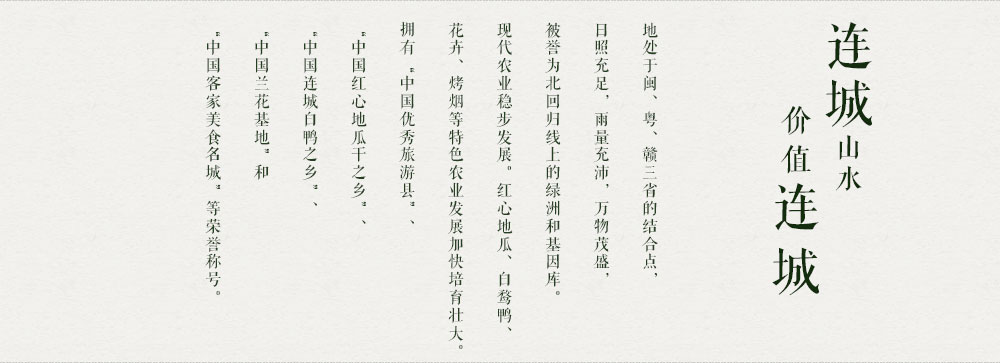 连城山水
价值连城
地处于闽、粤、赣三省的结合点，
日照充足，雨量充沛，万物茂盛，
被誉为北回归线上的绿洲和基因库。
现代农业稳步发展。红心地瓜、白鹜鸭、
花卉、烤烟等特色农业发展加快培育壮大。
拥有“中国优秀旅游县”、
“中国红心地瓜干之乡”、
“中国连城白鸭之乡”、
“中国兰花基地”和
“中国客家美食名城”等荣誉称号。